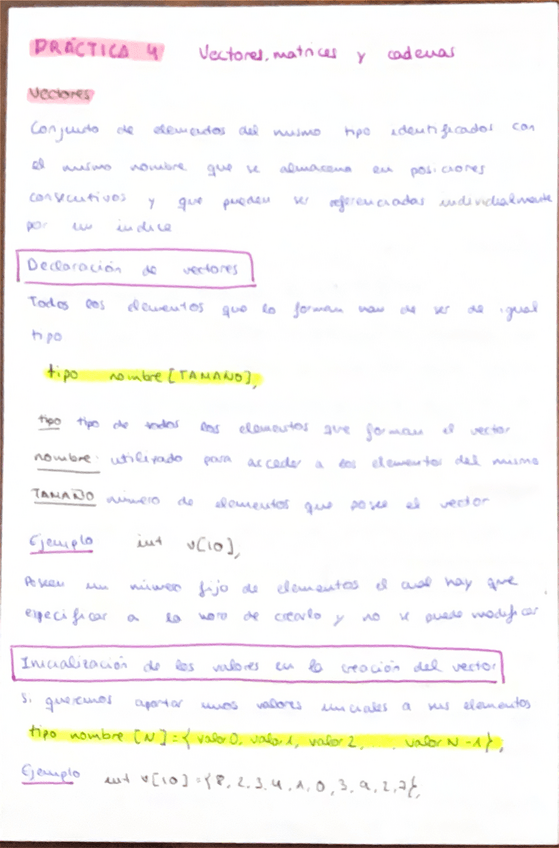 PRÁCTICA 4 Vectores, matrices y cadenas
Vectores
Conjunto de elementos del mismo tipo identificados con
el mismo nombre que se almacena en posiciones
consecutivos y que pueden ser referenciadas individualmente
por un indice
Declaración de vectores
Todos los elementos que lo forman han de ser de igual
tipo
tipo nombre [TAMAÑO];
tipo tipo de todos los elementos que forman el vector
nombre: utilizado para acceder a los elementos del mismo
TAMAÑO número de elementos que posee el vector
Ejemplo int v[10];
Poseen un número fijo de elementos el cual hay que
especificar a la hora de crearlo y no se puede modificar
Inicialización de los valores en la creación del vector
Si queremos aportar unos valores iniciales a sus elementos
tipo nombre [N]={ valor 0, valor 1, valor 2, ... valor N-1};
Ejemplo int v[10]={8, 2, 3, 4, 1, 0, 3, 9, 2, 7};